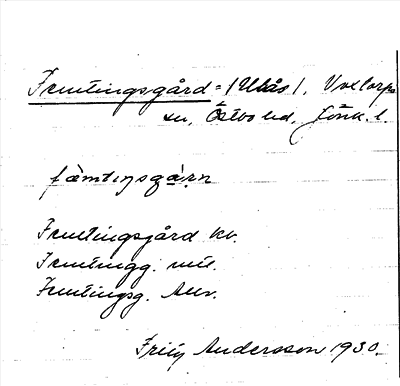 Femtingsgård = (Ulås), Voxtorps
sn, Östbo hd, Jönk. l.
fæ̀mtıŋsgàrn
Femtingsgård kv.
Femtingg. mtl.
Femtingsg. Anv.
Frity Andersson 1930.